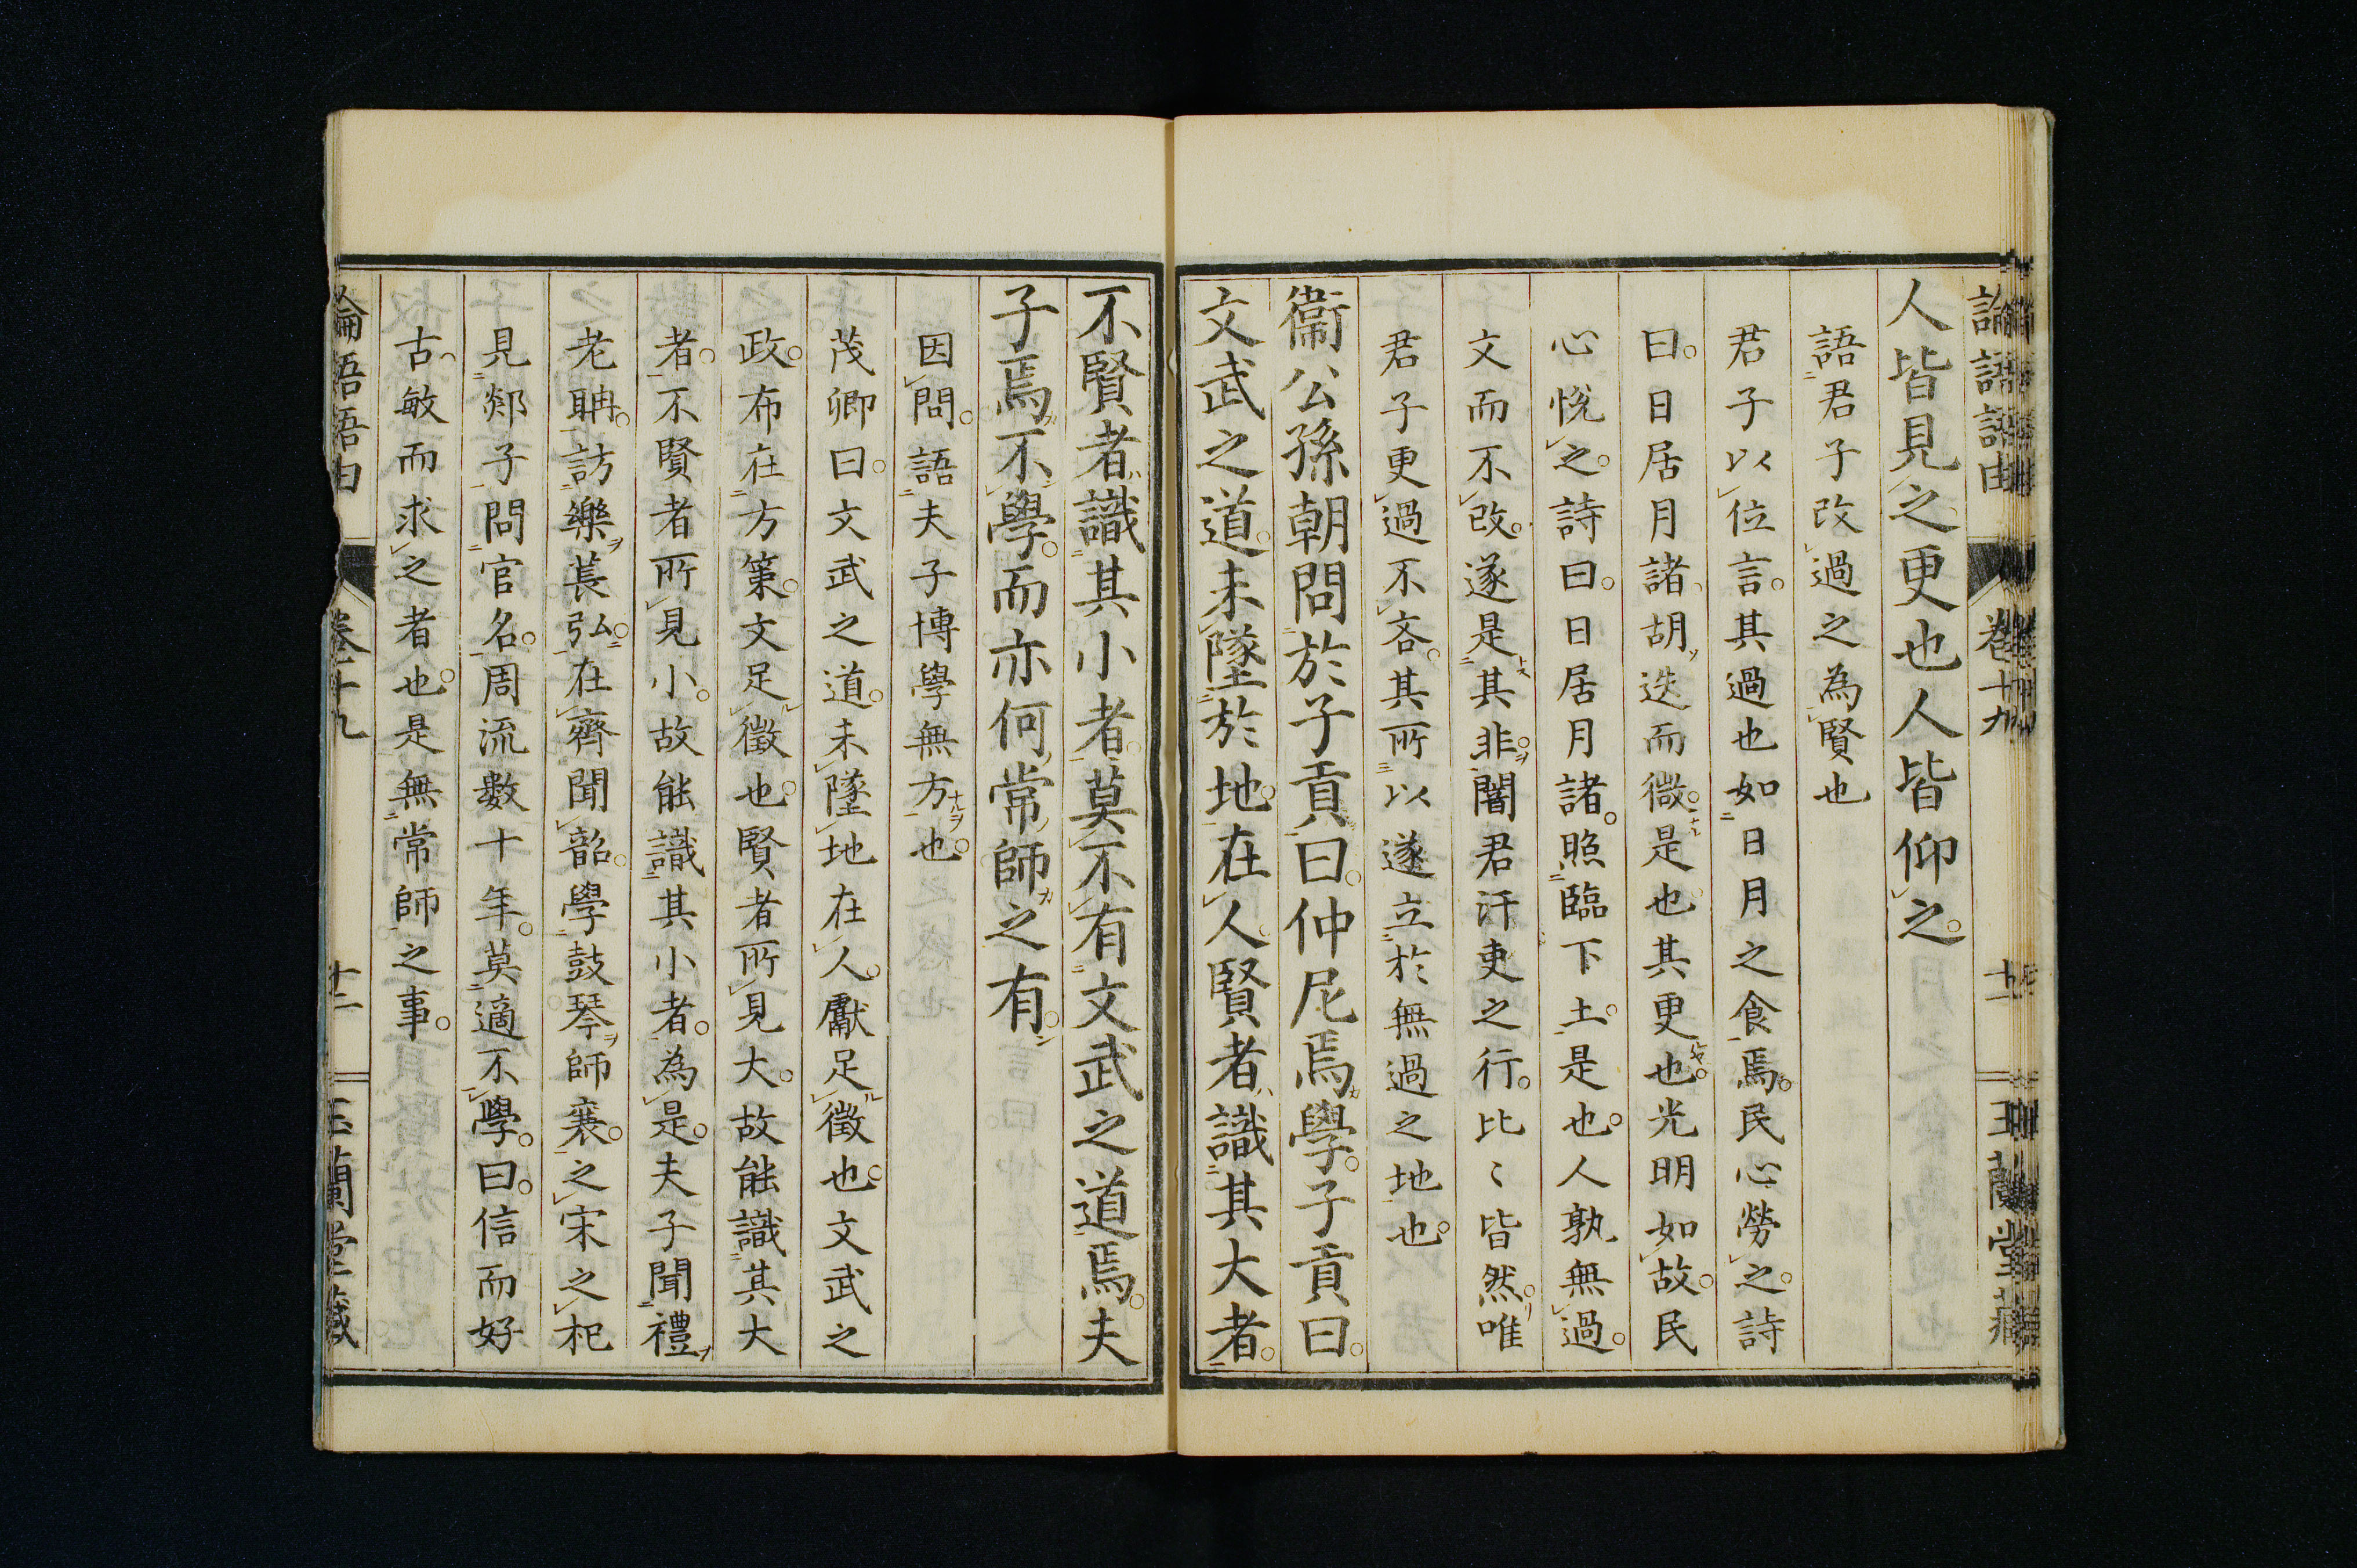 論語語由 卷十九 十一 玉蘭堂藏
人皆見之更也人皆仰之。
語君子改過之為賢也
君子以位言。其過也如日月之食焉。民心勞之。詩
曰。日居月諸胡迭而微。是也其更也。光明如故。民
心悅之。詩曰。日居月諸。照臨下土。是也。人孰無過。
文而不改。遂是其非。闇君汙吏之行。比〻皆然。唯
君子更過不吝。其所以遂立於無過之地也。
衞公孫朝問於子貢曰。仲尼焉學。子貢曰。
文武之道。未墜於地。在人賢者識其大者。
不賢者識其小者。莫不有文武之道焉。夫
子焉不學。而亦何常師之有。
因問。語夫子博學無方也。
茂卿曰。文武之道。未墜地在人。獻足徵也。文武之
政。布在方策。文足徵也。賢者所見大。故能識其大
者。不賢者所見小。故能識其小者。為是。夫子聞禮
老聃。訪樂萇弘。在齊聞韶。學鼓琴師襄。之宋之杞
見郯子問官名。周流數十年。莫適不學。曰。信而好
古。敏而求之者也。是無常師之事。
論語語由 卷十九 十二 玉蘭堂藏